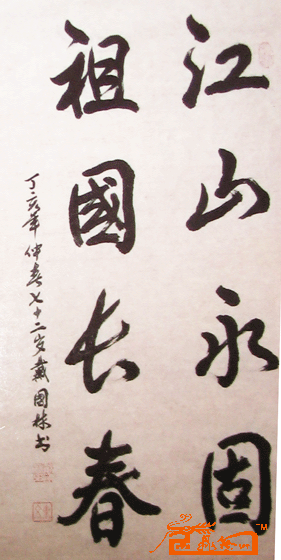 江山永固
祖國长春
丁亥年仲春七十二岁戴国樑书